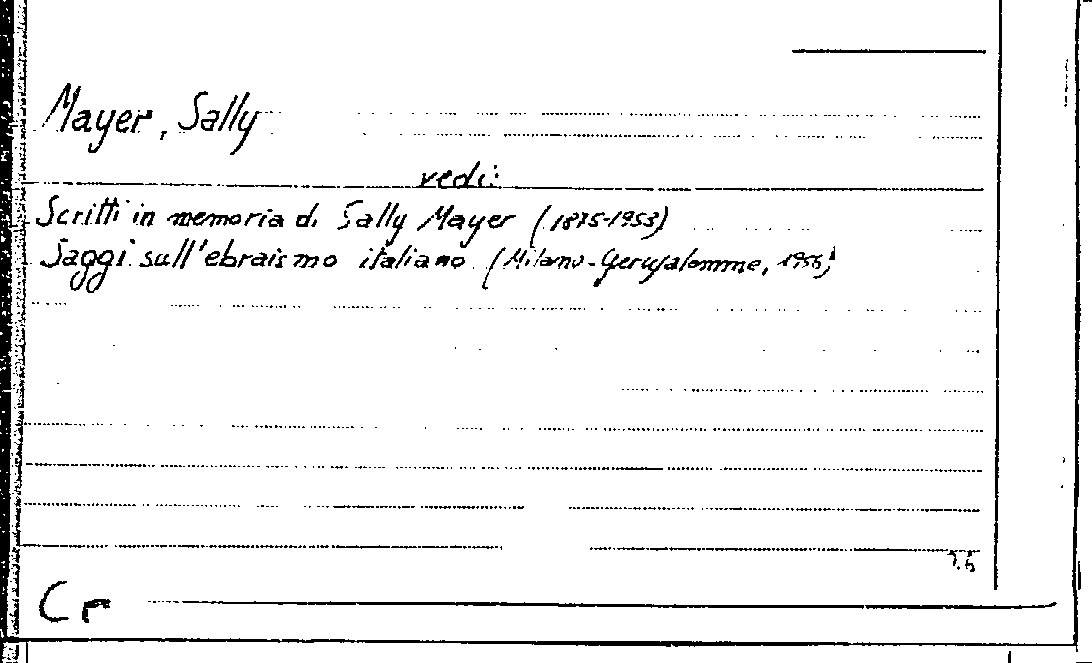 Mayer, Sally
vedi:
Scritti in memoria di Sally Mayer (1875-1953)
Saggi sull'ebraismo italiano (Milano-Gerusalemme, 1956)
Cr